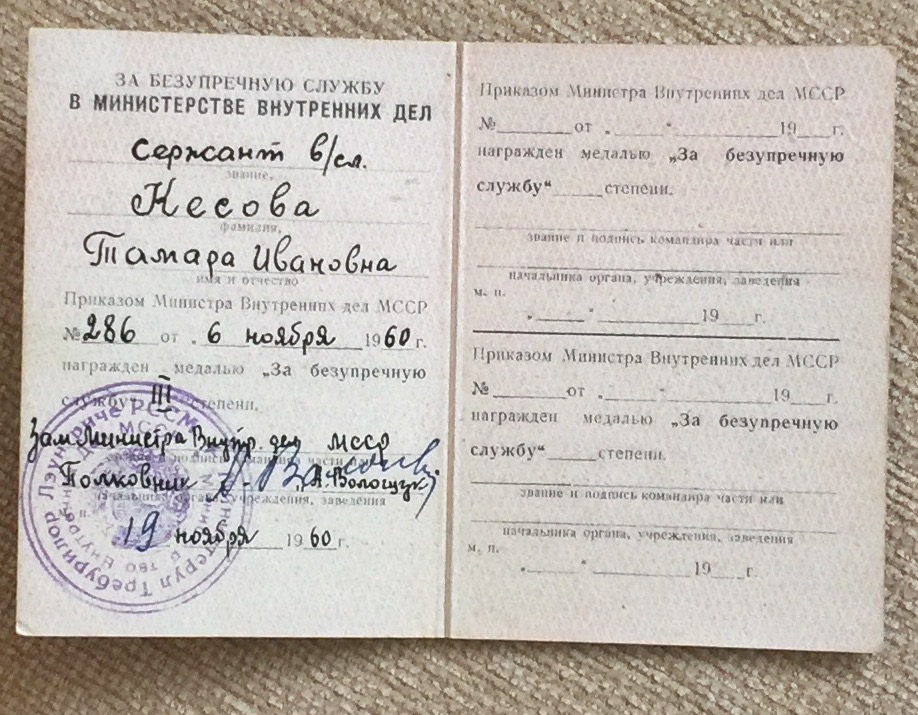 ЗА БЕЗУПРЕЧНУЮ СЛУЖБУ
В МИНИСТЕРСТВЕ ВНУТРЕННИХ ДЕЛ
Сержант в/сл.
звание,
Кесова
фамилия,
Тамара Ивановна
имя и отчество
Приказом Министра Внутренних дел МССР
№ 286 от „ 6 ноября 1960 г.
награжден медалью „За безупречную
службу" III степени.
Зам Министра Внутр. дел МССР
звание и подпись командира части или
Полковник (А. Волощук)
начальника органа, учреждения, заведения
м. п.
„19 ноября 1960 г.
Лэунтриче РССМ
Министерул Требурилор
МССР
Приказом Министра Внутренних дел МССР
№ от „ " 19 г.
награжден медалью „За безупречную
службу" степени.
звание и подпись командира части или
начальника органа, учреждения, заведения
м. п.
„ " 19 г.
Приказом Министра Внутренних дел МССР
№ от „ " 19 г.
награжден медалью „За безупречную
службу" степени.
звание и подпись командира части или
начальника органа, учреждения, заведения
м. п.
„ " 19 г.